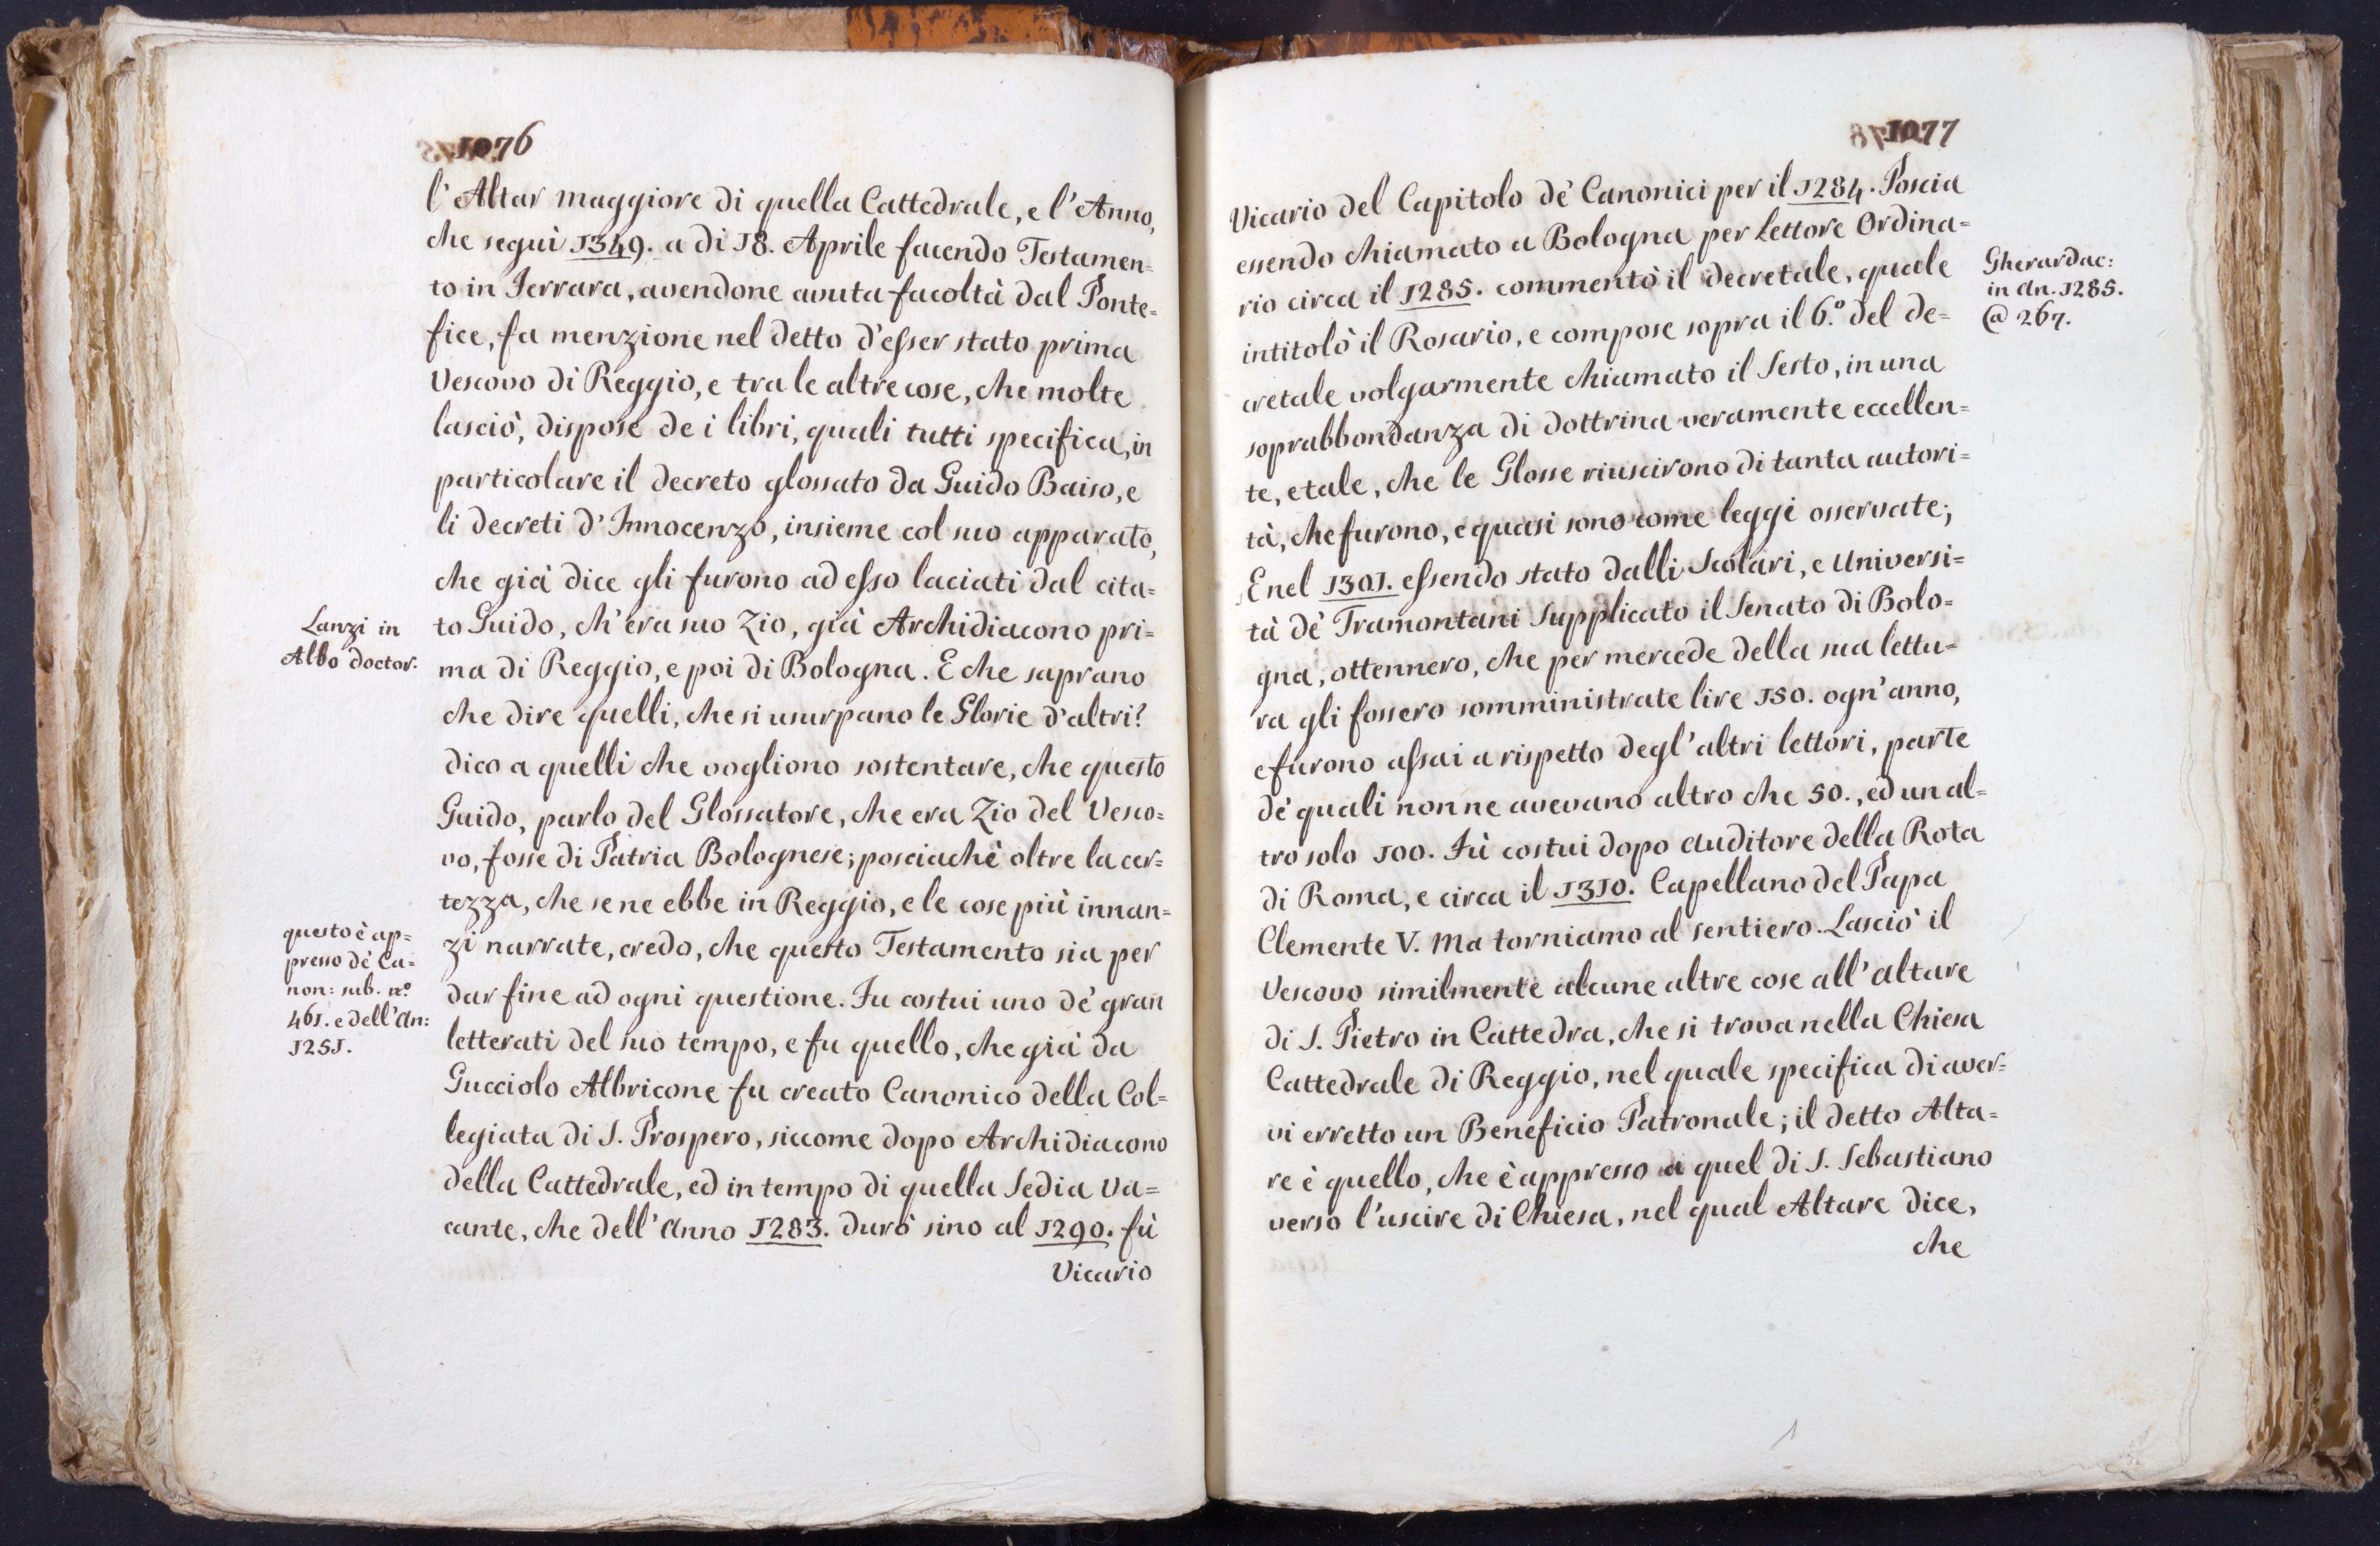 1076
l'Altar maggiore di quella Cattedrale, e l'Anno,
che seguì 1349. a di 18. Aprile facendo Testamen=
to in Ferrara, avendone avuta facoltà dal Ponte=
fice, fa menzione nel detto d'esser stato prima
Vescovo di Reggio, e tra le altre cose, che molte
lasciò, dispose de i libri, quali tutti specifica, in
particolare il decreto glossato da Guido Baiso, e
li decreti d'Innocenzo, insieme col suo apparato,
che già dice gli furono ad esso laciati dal cita=
to Guido, ch'era suo Zio, già Archidiacono pri=
ma di Reggio, e poi di Bologna. E che saprano
che dire quelli, che si usurpano le Glorie d'altri?
dico a quelli che vogliono sostentare, che questo
Guido, parlo del Glossatore, che era Zio del Vesco=
vo, fosse di Patria Bolognese; posciachè oltre la cer=
tezza, che se ne ebbe in Reggio, e le cose più innan=
zi narrate, credo, che questo Testamento sia per
dar fine ad ogni questione. Fu costui uno dè gran
letterati del suo tempo, e fu quello, che già da
Gucciolo Albricone fu creato Canonico della Col=
legiata di S. Prospero, siccome dopo Archidiacono
della Cattedrale, ed in tempo di quella Sedia Va=
cante, che dell'Anno 1283. durò sino al 1290. fù
Vicario
Lanzi in
Albo doctor.
questo è ap=
presso dè Ca=
non: sub. nº
461. e dell'An:
1251.
1077
Vicario del Capitolo dè Canonici per il 1284. Poscia
essendo chiamato a Bologna per Lettore Ordina=
rio circa il 1285. commentò il decretale, quale
intitolò il Rosario, e compose sopra il 6.º del de=
cretale volgarmente chiamato il Sesto, in una
soprabbondanza di dottrina veramente eccellen=
te, e tale, che le Glosse riuscirono di tanta autori=
tà, che furono, e quasi sono come leggi osservate;
E nel 1301. essendo stato dalli Scolari, e Universi=
tà dè Tramontani Supplicato il Senato di Bolo=
gna, ottennero, che per mercede della sua lettu=
ra gli fossero somministrate lire 150. ogn'anno,
e furono assai a rispetto degl'altri lettori, parte
dè quali non ne avevano altro che 50., ed un al=
tro solo 100. Fù costui dopo Auditore della Rota
di Roma, e circa il 1310. Capellano del Papa
Clemente V. Ma torniamo al sentiero. Lasciò il
Vescovo similmente alcune altre cose all'Altare
di S. Pietro in Cattedra, che si trova nella Chiesa
Cattedrale di Reggio, nel quale specifica di aver=
vi erretto un Beneficio Patronale; il detto Alta=
re è quello, che è appresso a quel di S. Sebastiano
verso l'uscire di Chiesa, nel qual Altare dice,
che
Gherardac:
in An. 1285.
@ 267.